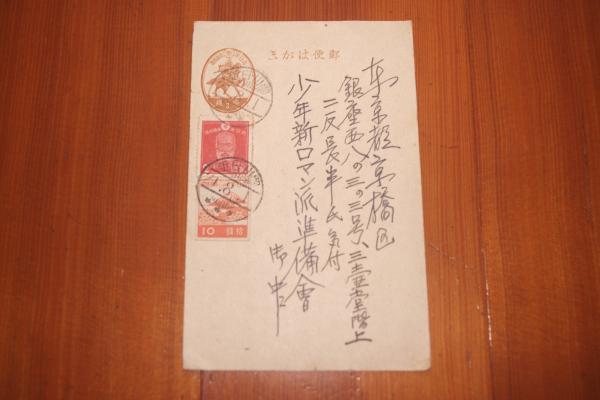 郵便はがき
東京都京橋区
銀座西八の三の三号、三壺堂階上
二反長半氏気付
少年新ロマン派準備會
御中
10 拾銭